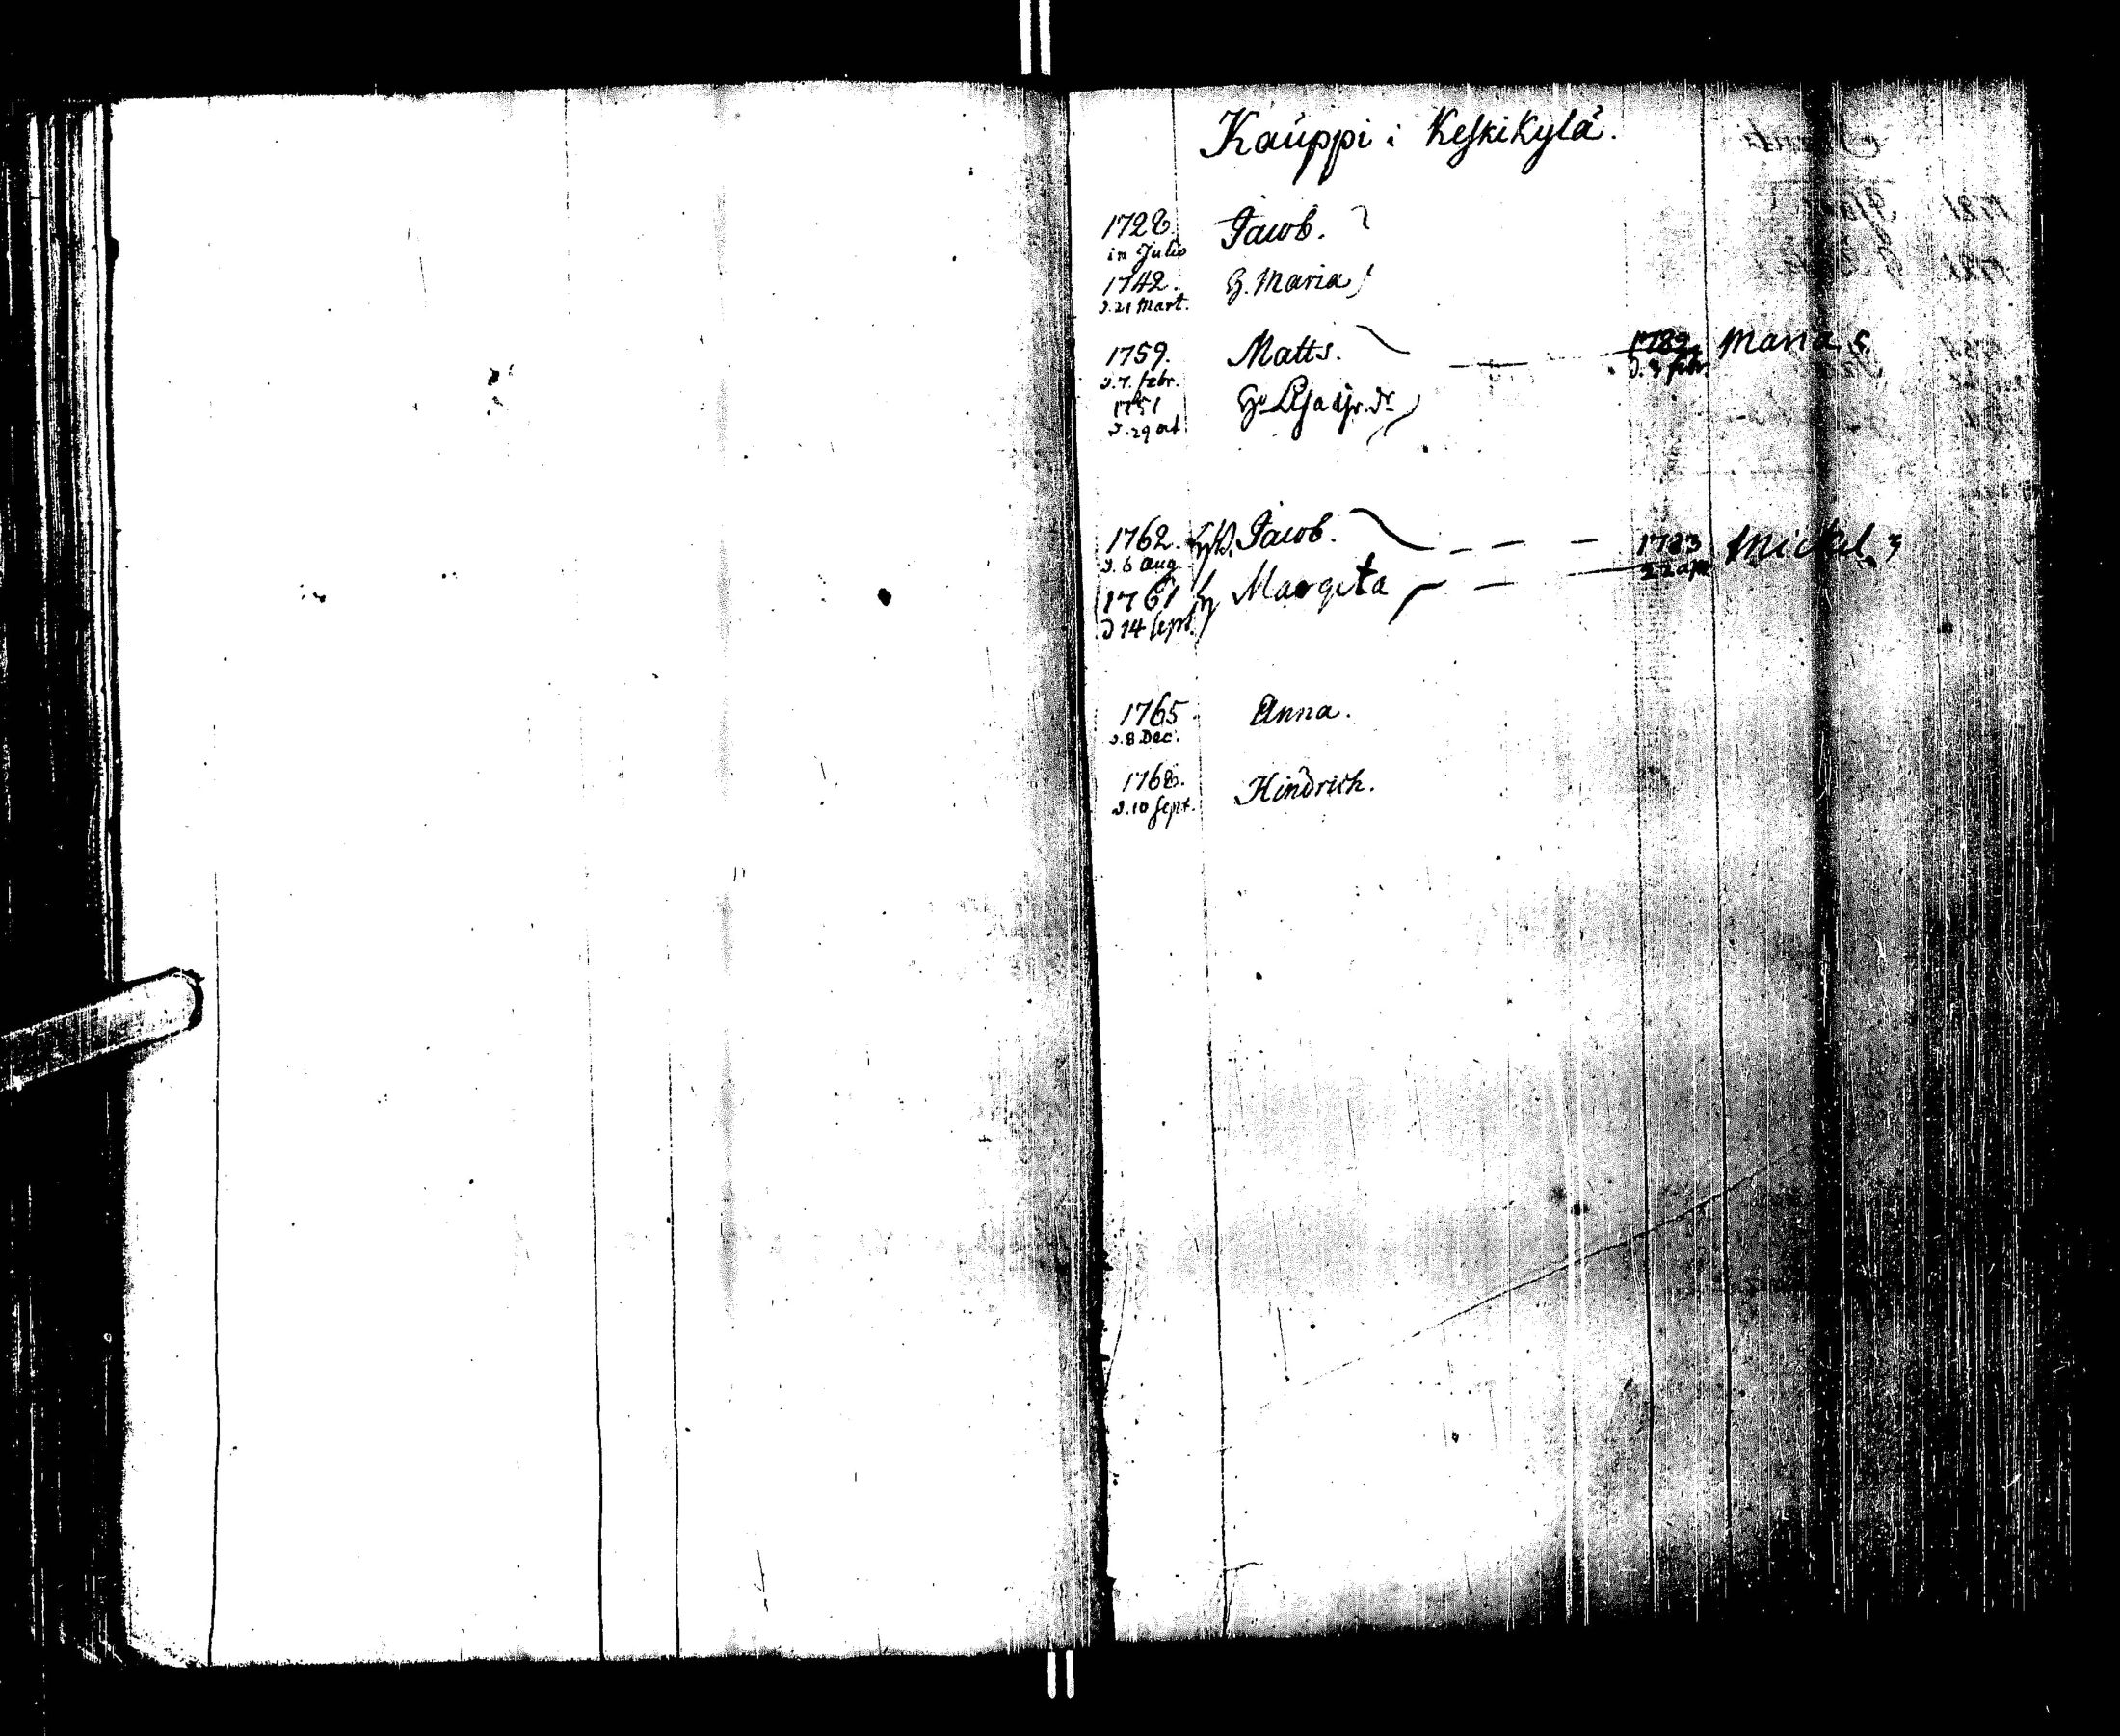 Kauppi i Keskikylä.
1728. Jacob.
in Julio
1742. H. Maria
d. 21 Mart.
1759. Matts. 1782 Maria
d. 7. febr. d. 3 febr.
1751 H. Lisa
d. 29 oct
1762. Jacob. 1783 Mickel
d. 6 aug
1761 H Margeta
d 14 sept.
1765 Anna.
d. 8 Dec.
1768. Hindrich.
d. 10 Sept.